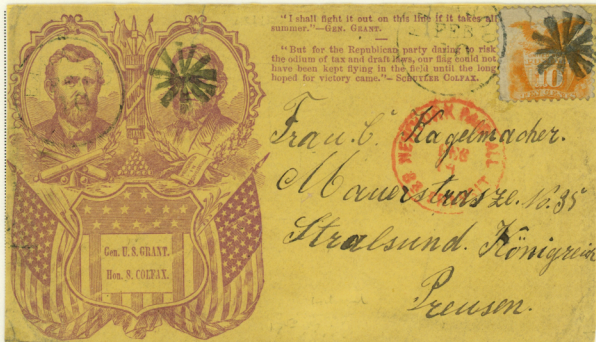 "I shall fight it out on this line if it takes all
summer."—GEN. GRANT.
"But for the Republican party daring to risk
the odium of tax and draft laws, our flag could not
have been kept flying in the field until the long
hoped for victory came."—SCHUYLER COLFAX.
FEB
10
Frau C. Kagelmacher.
Mauerstrasze. No. 35
Stralsund. Königreich
Preusen.
NEW YORK PAID ALL
FEB
Gen. U. S. GRANT.
Hon. S. COLFAX.